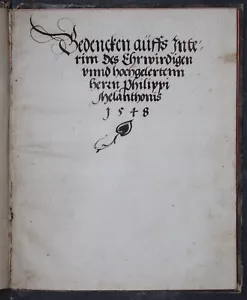 Bedencken auffs Inte-
rim des Ehrwirdigen
vnnd hochgelertenn
herrn Philippi
Melanthonis
1548